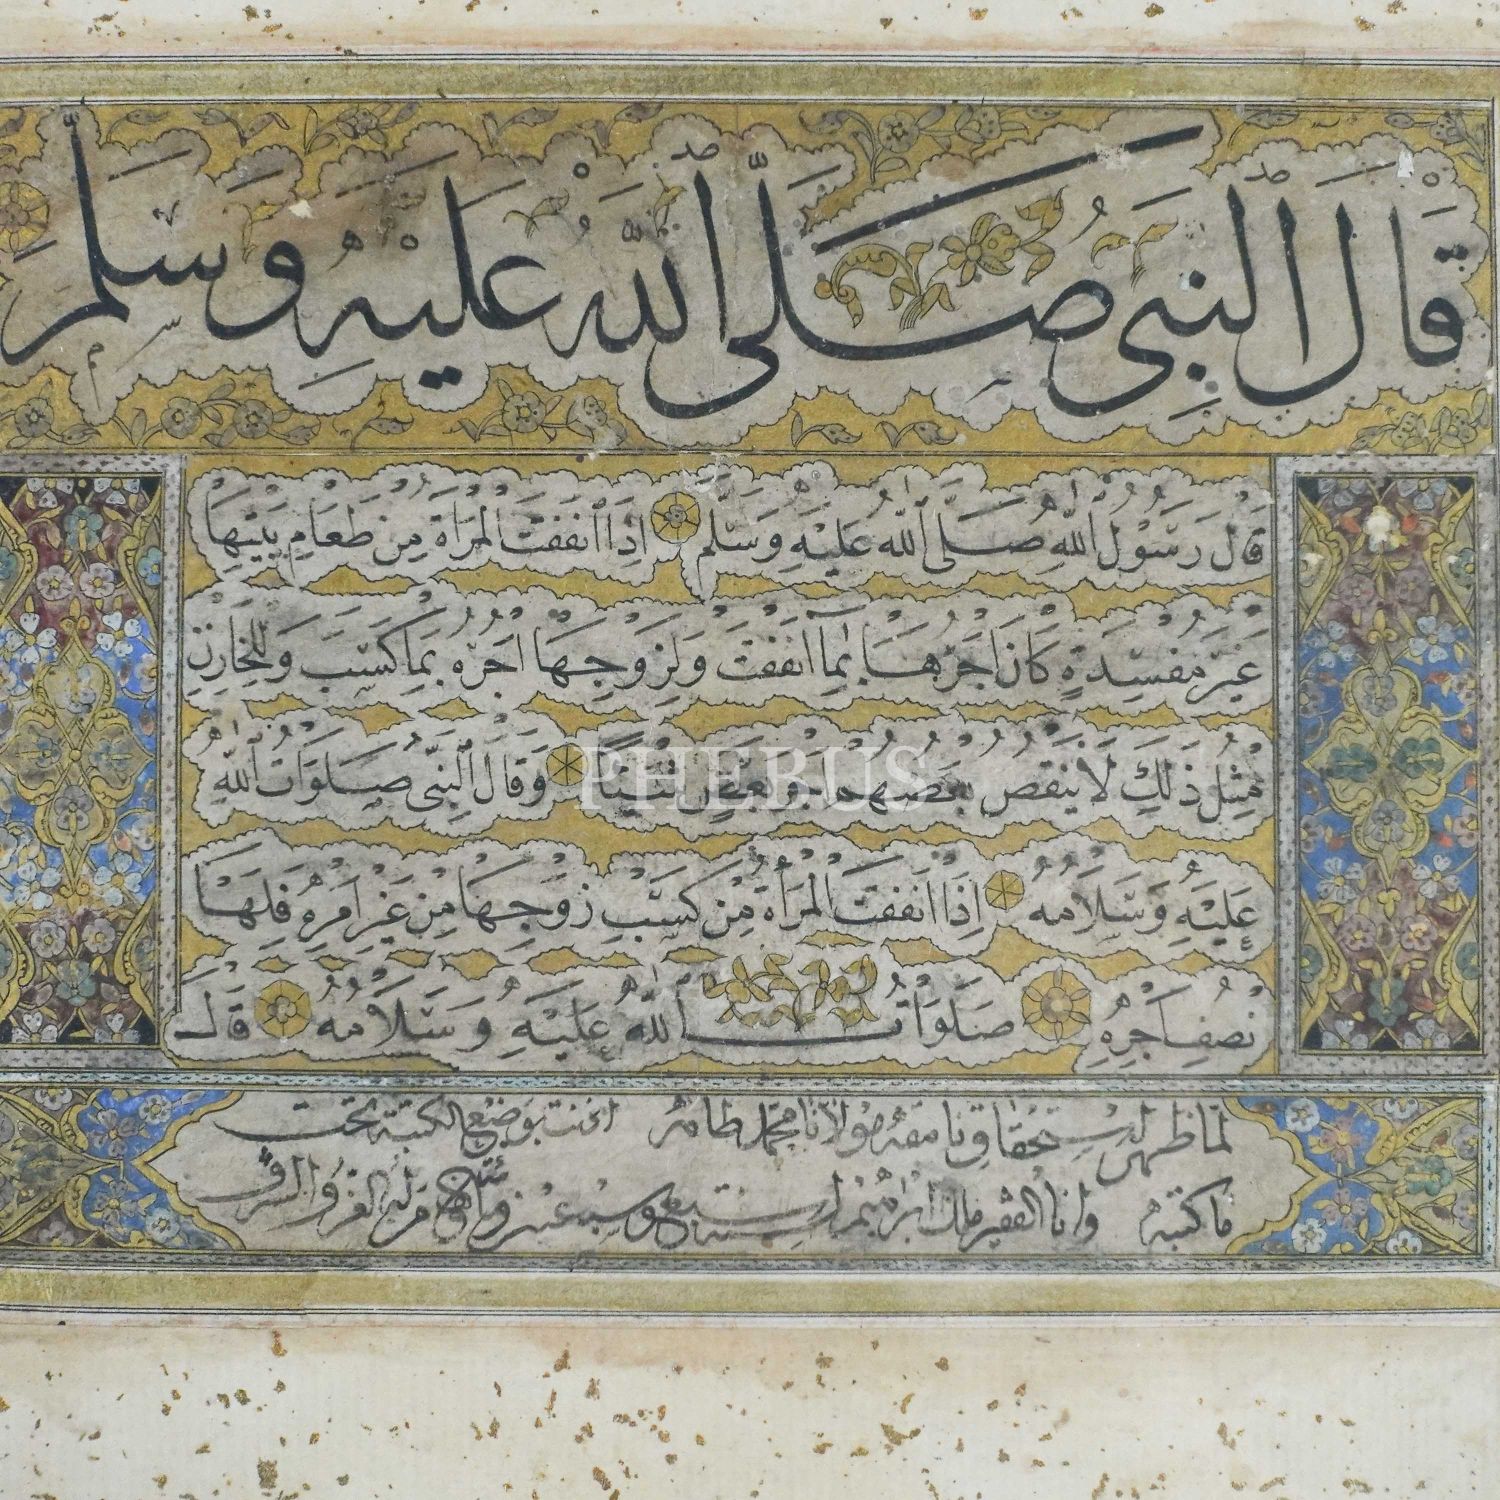 قَالَ النَّبِيُّ صَلَّى اللَّهُ عَلَيْهِ وَسَلَّمَ
قَالَ رَسُولُ اللَّهِ صَلَّى اللَّهُ عَلَيْهِ وَسَلَّمَ إِذَا أَنْفَقَتِ الْمَرْأَةُ مِنْ طَعَامِ بَيْتِهَا
غَيْرَ مُفْسِدَةٍ كَانَ أَجْرُهَا بِمَا أَنْفَقَتْ وَلِزَوْجِهَا أَجْرُهُ بِمَا كَسَبَ وَلِلْخَازِنِ
مِثْلُ ذَلِكَ لَا يَنْقُصُ بَعْضُهُمْ أَجْرَ بَعْضٍ شَيْئًا وَقَالَ النَّبِيُّ صَلَوَاتُ اللَّهِ
PHEBUS
عَلَيْهِ وَسَلَامُهُ إِذَا أَنْفَقَتِ الْمَرْأَةُ مِنْ كَسْبِ زَوْجِهَا مِنْ غَيْرِ أَمْرِهِ فَلَهَا
نِصْفُ أَجْرِهِ صَلَوَاتُ اللَّهِ عَلَيْهِ وَسَلَامُهُ قَالَ
لما ظهر لي استحقاق نامقه مولانا محمد طاهر اذنت بوضع الكتبة تحت
ما كتبه وانا الفقير سبع وسبعين